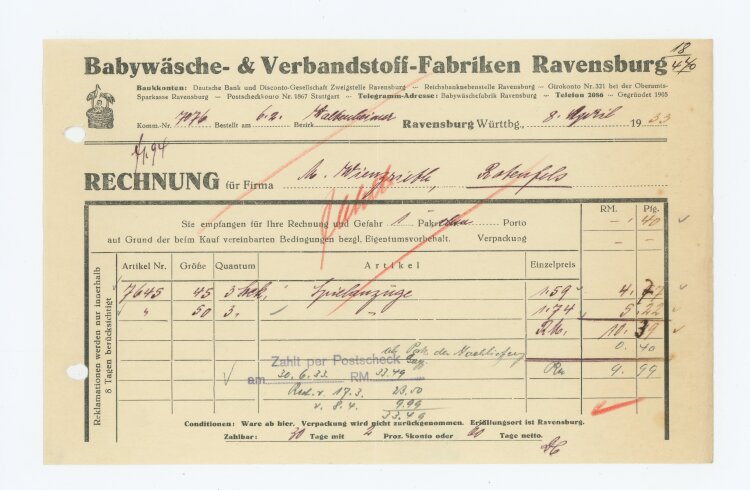 18
Babywäsche- & Verbandstoff-Fabriken Ravensburg
Bankkonten: Deutsche Bank und Disconto-Gesellschaft Zweigstelle Ravensburg — Reichsbanknebenstelle Ravensburg — Girokonto Nr. 321 bei der Oberamts-
Sparkasse Ravensburg — Postscheckkonto Nr. 1867 Stuttgart — Telegramm-Adresse: Babywäschefabrik Ravensburg — Telefon 2086 — Gegründet 1905
Komm.-Nr. 7076 Bestellt am 6.2. Bezirk Ravensburg Württbg., 8. April 1933
RECHNUNG für Firma Rotenfels
RM. Pfg.
Sie empfangen für Ihre Rechnung und Gefahr 1 Paket Porto — 40
auf Grund der beim Kauf vereinbarten Bedingungen bezgl. Eigentumsvorbehalt. Verpackung — —
Reklamationen werden nur innerhalb
8 Tagen berücksichtigt
Artikel Nr. Größe Quantum Artikel Einzelpreis
7645 45 3 Stck. Spielanzüge 1.59 4. 77
" 50 3. " 1.74 5.22
RM. 10. 39
0. 40
der Nachlieferg
Zahlt per Postscheck
am 30.6.33. RM. 33.49
Rm 9. 99
v. 17.3. 23.50
v. 8.4. 9.99
33.49
Conditionen: Ware ab hier. Verpackung wird nicht zurückgenommen. Erfüllungsort ist Ravensburg.
Zahlbar: 30 Tage mit 2 Proz. Skonto oder 60 Tage netto.